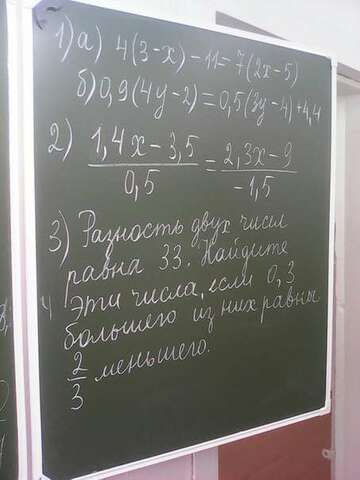 1) а) 4(3-x)-11=7(2x-5)
б) 0,9(4y-2)=0,5(3y-4)+4,4
2) (1,4x-3,5)/0,5 = (2,3x-9)/-1,5
3) Разность двух чисел
равна 33. Найдите
эти числа, если 0,3
большего из них равны
2/3 меньшего.